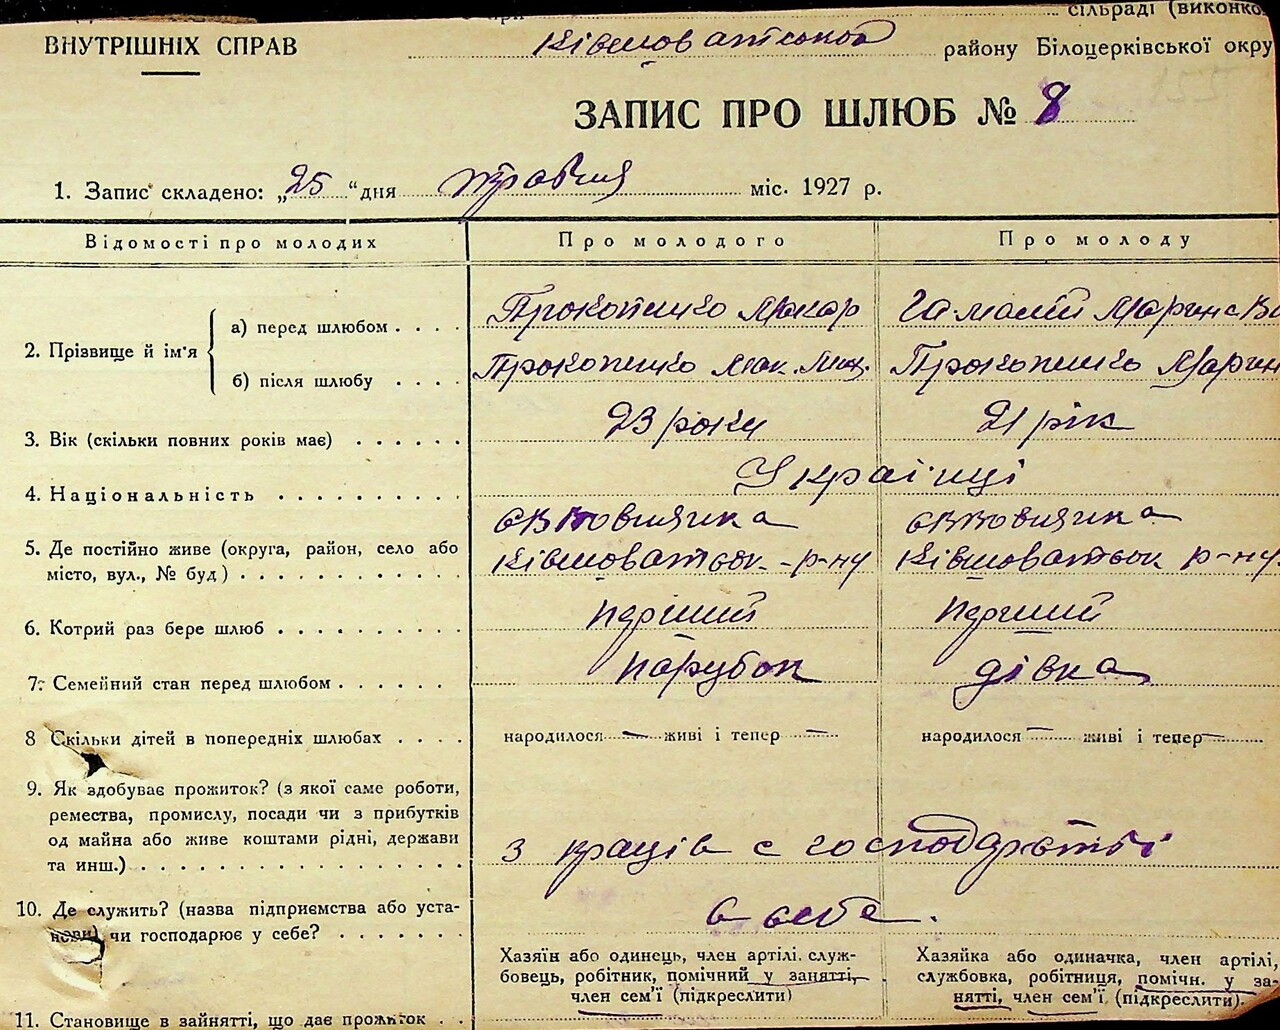 сільраді (виконко
ВНУТРІШНІХ СПРАВ
Ківшоватської району Білоцерківської окру
ЗАПИС ПРО ШЛЮБ № 8
1. Запис складено: „25 “ дня травня міс. 1927 р.
Відомості про молодих Про молодого Про молоду
2. Прізвище й ім'я
а) перед шлюбом . . . . Прокопенко Макар Гамалій Марина
б) після шлюбу . . . . Прокопенко Мак. Прокопенко Марин
3. Вік (скільки повних років має) . . . . . . 23 роки 21 рік
4. Національність . . . . . . . . . . Українці
5. Де постійно живе (округа, район, село або
місто, вул., № буд) . . . . . . . . . . Ківшоватськ. р-ну Ківшоватськ р-ну
6. Котрий раз бере шлюб . . . . . . . . . . перший перший
7. Семейний стан перед шлюбом . . . . . . парубок дівка
8 Скільки дітей в попередніх шлюбах . . . . народилося — живі і тепер — народилося — живі і тепер —
9. Як здобуває прожиток? (з якої саме роботи,
ремества, промислу, посади чи з прибутків
од майна або живе коштами рідні, держави
та инш.) . . . . . . . . . . з праців с господарстві
10. Де служить? (назва підприємства або уста-
нови) чи господарює у себе? . . . . . . . в себе.
Хазяїн або одинець, член артілі. служ-
бовець, робітник, помічний у занятті,
член сем'ї (підкреслити)
Хазяйка або одиначка, член артілі,
службовка, робітниця, помічн. у за-
нятті, член сем'ї. (підкреслити).
11. Становище в зайнятті, що дає прожиток . .